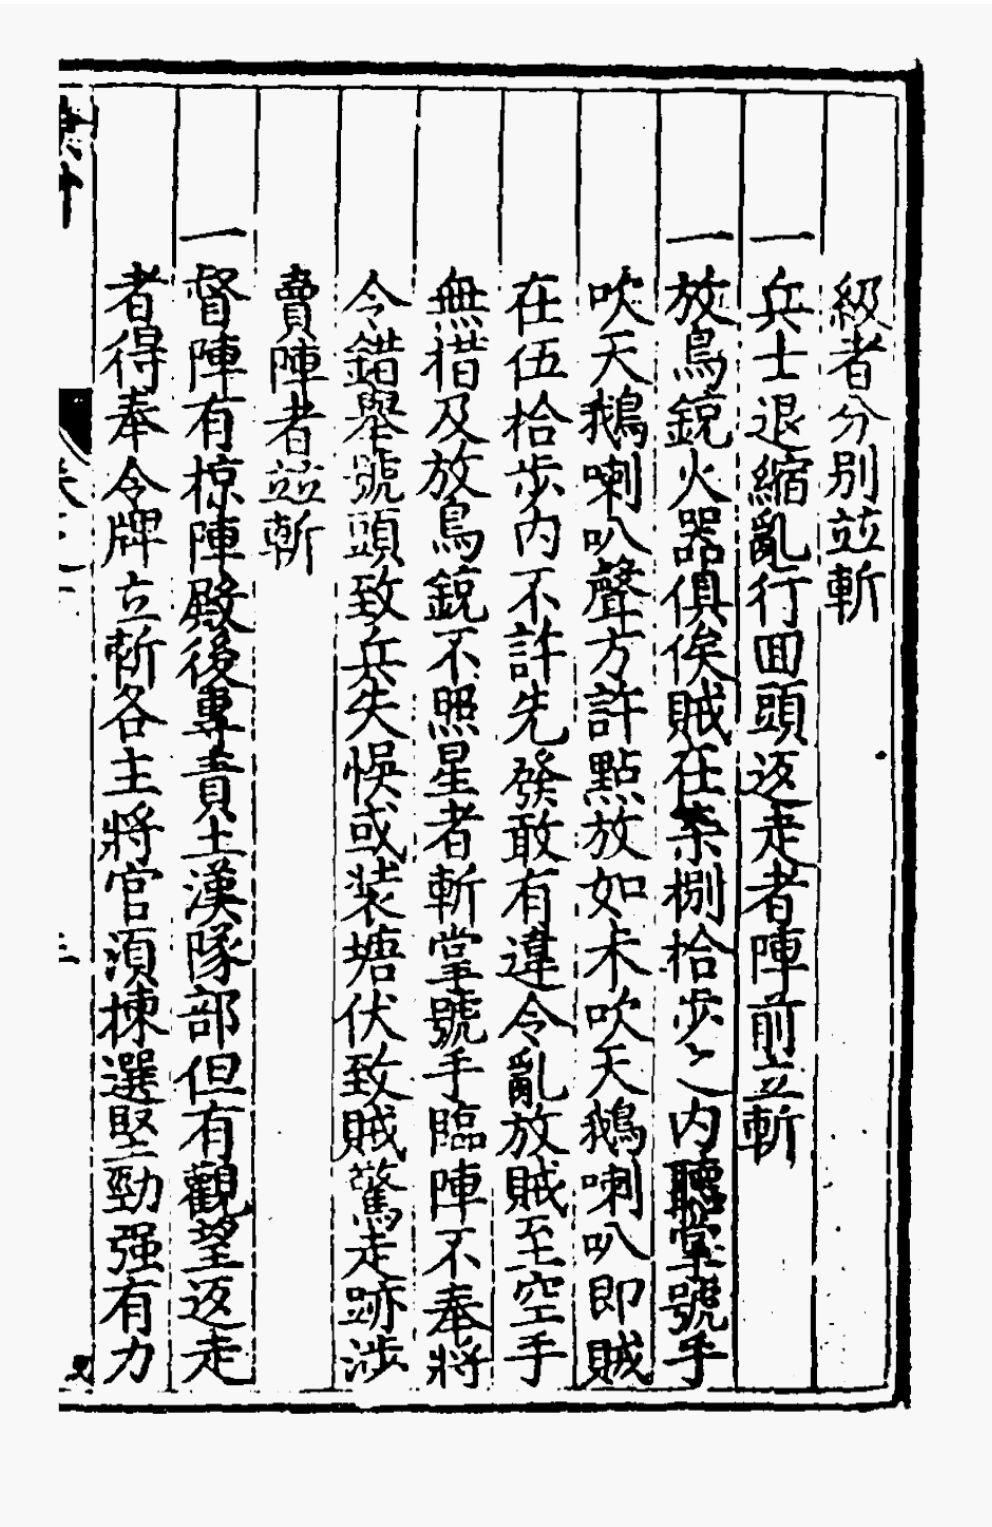 級者分別並斬
一兵士退縮亂行回頭返走者陣前立斬
一放鳥銃火器俱俟賊在柒捌拾步之內聽掌號手
吹天鵝喇叭聲方許點放如未吹天鵝喇叭即賊
在伍拾步內不許先發敢有違令亂放賊至空手
無措及放鳥銃不照星者斬掌號手臨陣不奉將
令錯舉號頭致兵失悞或装塘伏致賊驚走跡涉
賣陣者並斬
一督陣有掠陣殿後專責土漢隊部但有觀望返走
者得奉令牌立斬各主將官湏揀選堅勁强有力